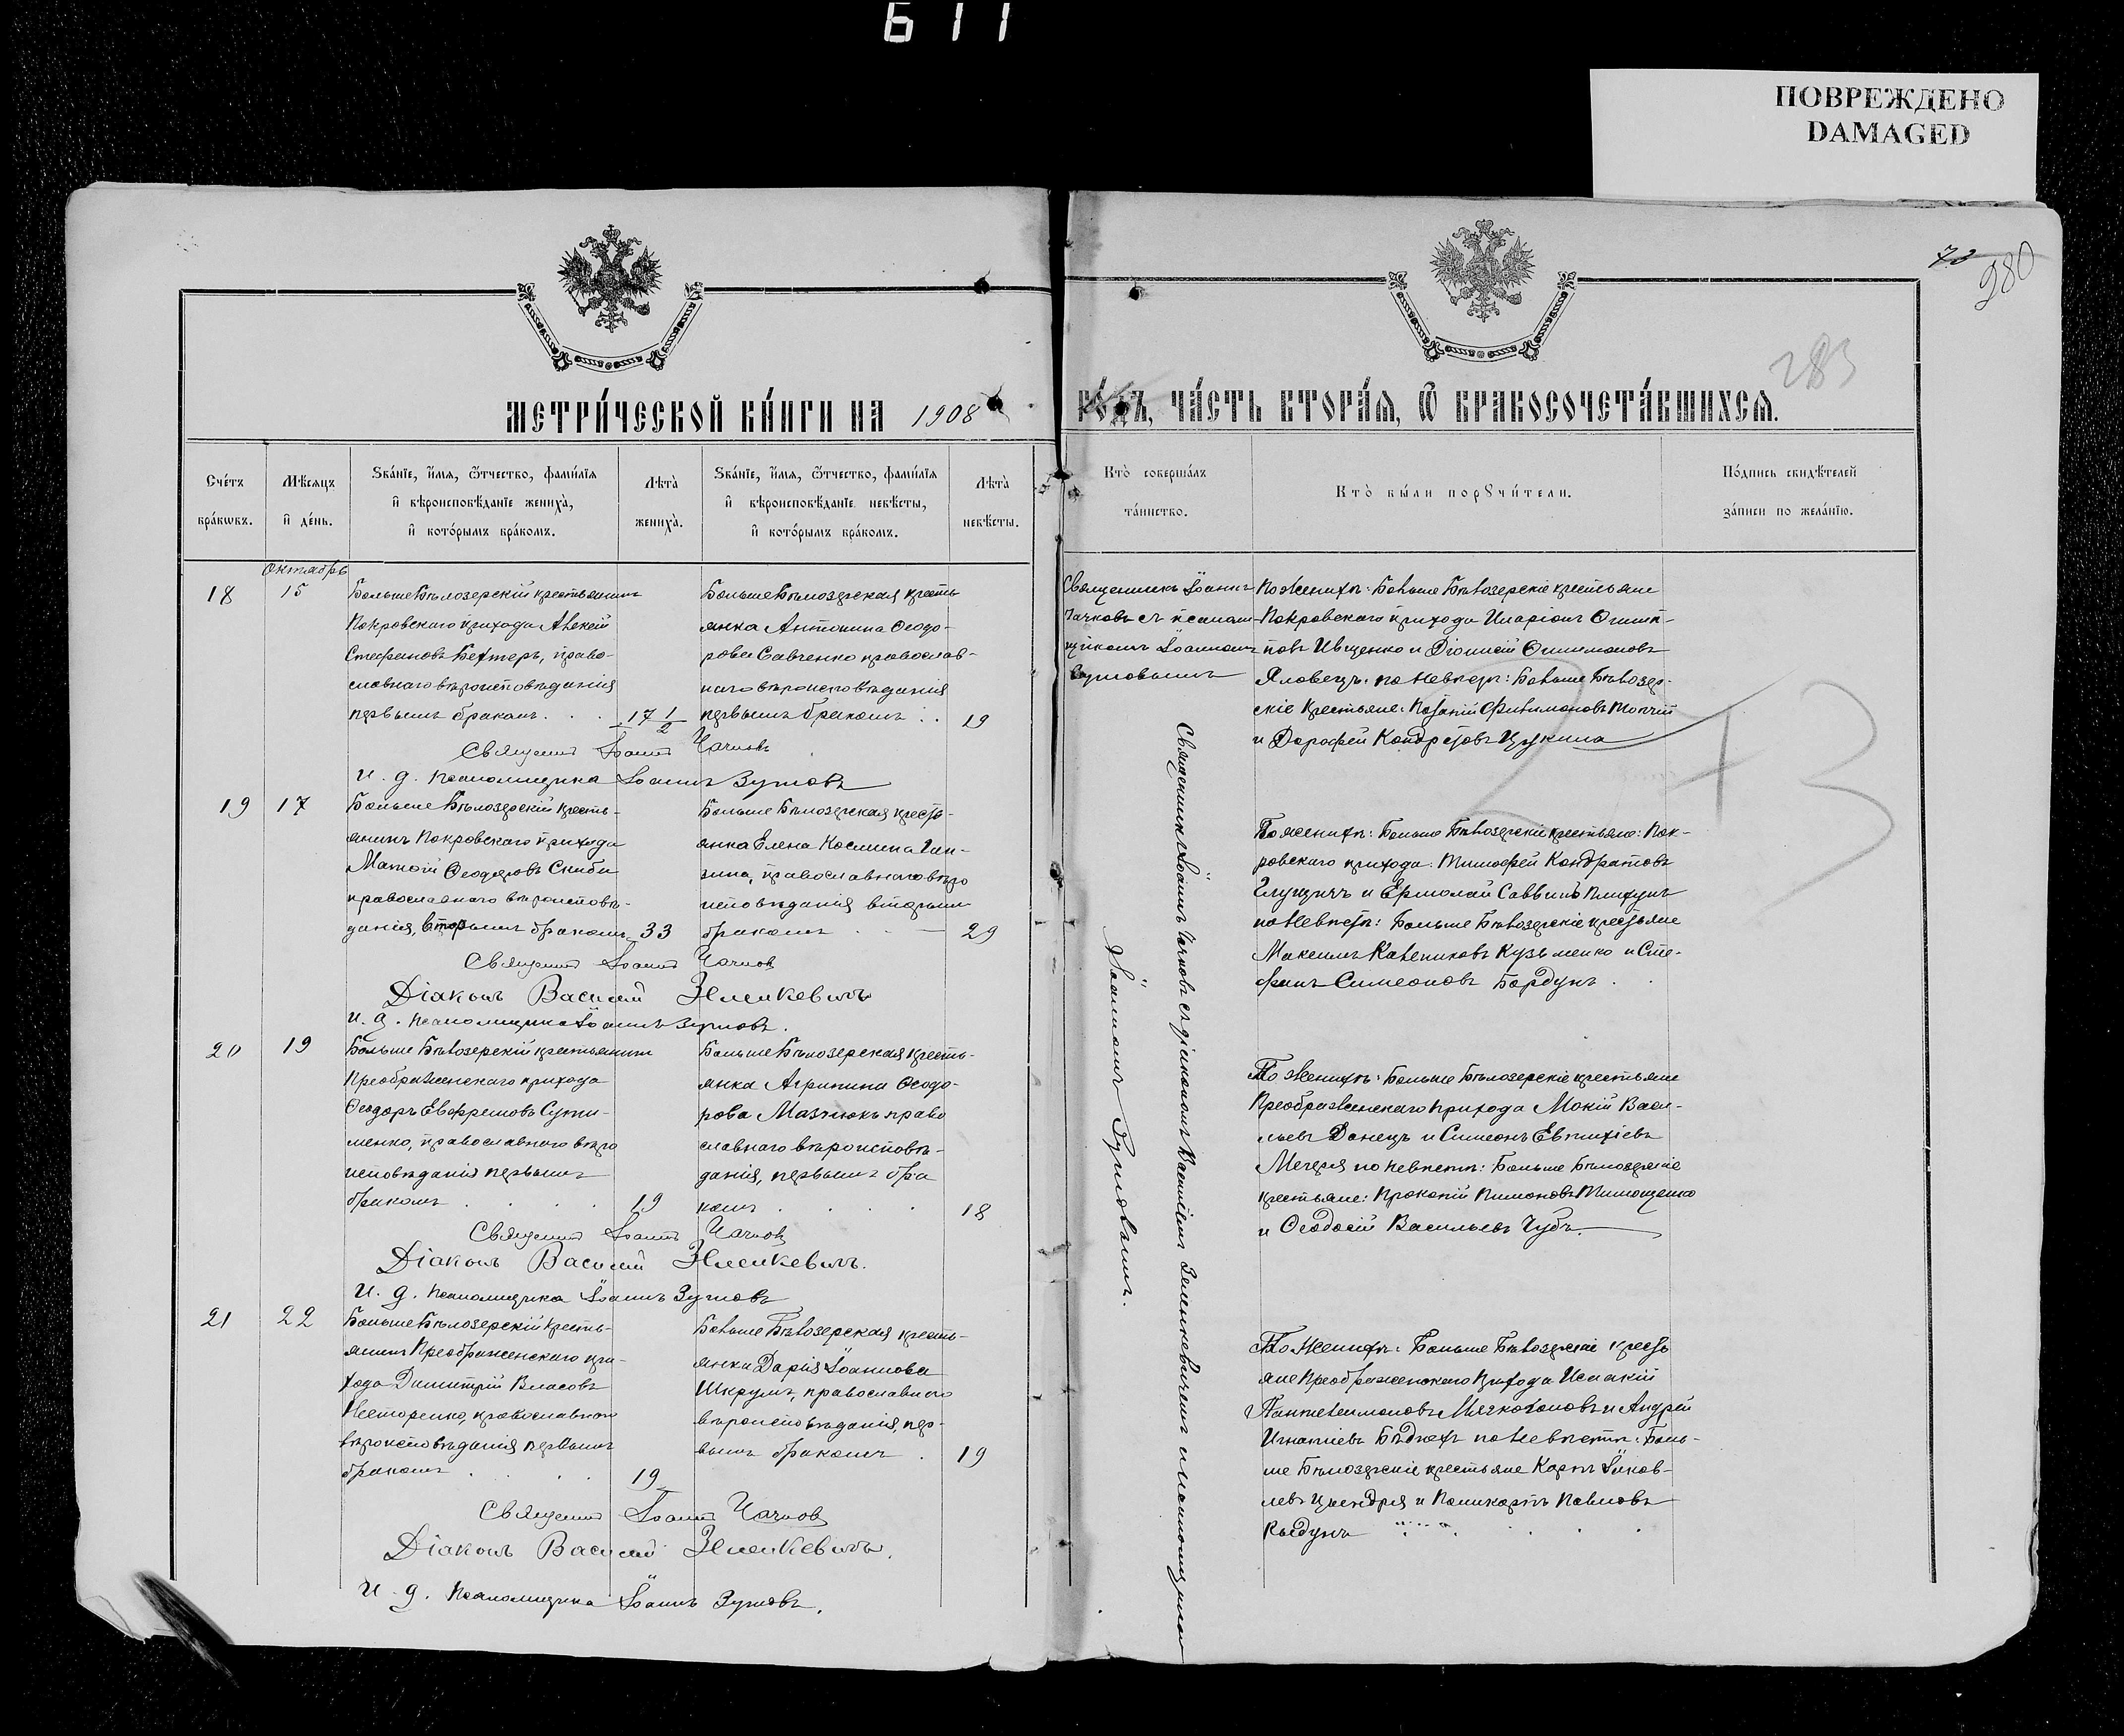 611
ПОВРЕЖДЕНО
DAMAGED
70
280
283
МЕТРИ́ЧЕСКОЙ КНИ́ГИ НА 1908
ГО́ДЪ, ЧА́СТЬ ВТОРА́Я, Ѿ БРАКОСОЧЕТА́ВШИХСЯ.
Сче́тъ бра́кѡвъ.
Мѣ́сяцъ и҆ де́нь.
Ѕва́нїе, и҆́мя, ѻ҆́тчество, фами́лїя
и҆ вѣроисповѣ́данїе жениха̀,
и҆ кото́рымъ бра́комъ.
Лѣта̀ жениха̀.
Ѕва́нїе, и҆́мя, ѻ҆́тчество, фами́лїя
и҆ вѣроисповѣ́данїе невѣ́сты,
и҆ кото́рымъ бра́комъ.
Лѣта̀ невѣ́сты.
Кто̀ соверша́лъ
та́инство.
Кто̀ бы́ли порꙋчи́тели.
По́дпись свидѣ́телей
за́писи по жела́нїю.
Октябрь
18
15
БольшеБѣлозерскій крестьянинъ
Покровскаго прихода Алексѣй
Стефановъ Бехтеръ, право-
славнаго вѣроисповѣданія
первымъ бракомъ . . .
17 1/2
БольшеБѣлозерская кресть
янка Антонина Ѳеодо-
рова Савченко православ-
наго вѣроисповѣданія
первымъ бракомъ . .
19
Священникъ Іоаннъ
Чачковъ съ псалом-
щикомъ Іоанномъ
Зуховымъ
По женихѣ: Больше Бѣлозерскіе крестьяне
Покровскаго прихода Иларіонъ
Иваненко и Діонисій
Яловецъ. по невѣстѣ: Больше Бѣлозер-
скіе крестьяне: Филимоновъ
и Дорофей Кондратовъ
Священникъ Іоаннъ Чачковъ
И. д. псаломщика Іоаннъ Зуховъ
2+3
19
17
Больше Бѣлозерскій кресть-
янинъ Покровскаго прихода
Матѳій Ѳеодоровъ Скиба
православнаго вѣроисповѣ-
данія, вторымъ бракомъ
33
Больше Бѣлозерская кресть-
янка Елена Космина Гап-
зина, православнаго вѣро
исповѣданія вторымъ
бракомъ
29
По женихѣ: Больше Бѣлозерскіе крестьяне: Пок-
ровскаго прихода: Тимофей Кондратовъ
и Ермолай Саввинъ
по невѣстѣ: Больше Бѣлозерскіе крестьяне
Максимъ Калениковъ Кузьменко и Сте-
фанъ Симеоновъ Бордунъ .
Священникъ Іоаннъ Чачковъ
Діаконъ Василій Зеленкевичъ
И. д. псаломщика Іоаннъ Зуховъ.
20
19
Больше Бѣлозерскій крестьянинъ
Преображенскаго прихода
Ѳеодоръ Евфремовъ Сухи-
менко, православнаго вѣро
исповѣданія первымъ
бракомъ . . . .
19
БольшеБѣлозерская кресть-
янка Агрипина Ѳеодо-
рова Мазнюкъ право
славнаго вѣроисповѣ-
данія, первымъ бра
комъ . . . .
18
По женихѣ: Больше Бѣлозерскіе крестьяне
Преображенскаго прихода Мокій Васи-
льевъ Донецъ и Симеонъ Евтихіевъ
Мечеря по невѣстѣ: Больше Бѣлозерскіе
крестьяне: Прокопій Пимоновъ Тимощенко
и Ѳеодосій Васильевъ Чубъ.
Священникъ Іоаннъ Чачковъ
Діаконъ Василій Зеленкевичъ.
И. д. псаломщика Іоаннъ Зуховъ
21
22
БольшеБѣлозерскій кресть-
янинъ Преображенскаго при-
хода Димитрій Власовъ
Нестеренко, православнаго
вѣроисповѣданія первымъ
бракомъ . . . .
19
Больше Бѣлозерская кресть-
янка Дарія Іоаннова
Шкрумъ, православнаго
вѣроисповѣданія, пер-
вымъ бракомъ .
19
По женихѣ: Больше Бѣлозерскіе кресть
яне Преображенскаго прихода Исаакій
Пантелеимоновъ Мягкоголовъ и Андрей
Игнатіевъ Бѣднехъ по невѣстѣ: Боль-
ше Бѣлозерскіе крестьяне Карпъ Іаков-
левъ Цвендря и Поликарпъ Павловъ
Священникъ Іоаннъ Чачковъ
Діаконъ Василій Зеленкевичъ.
И. д. псаломщика Іоаннъ Зуховъ.
Священникъ Іоаннъ Чачковъ съ діакономъ Василіемъ Зеленкевичемъ и псаломщикомъ
Іоанномъ Зуховымъ.